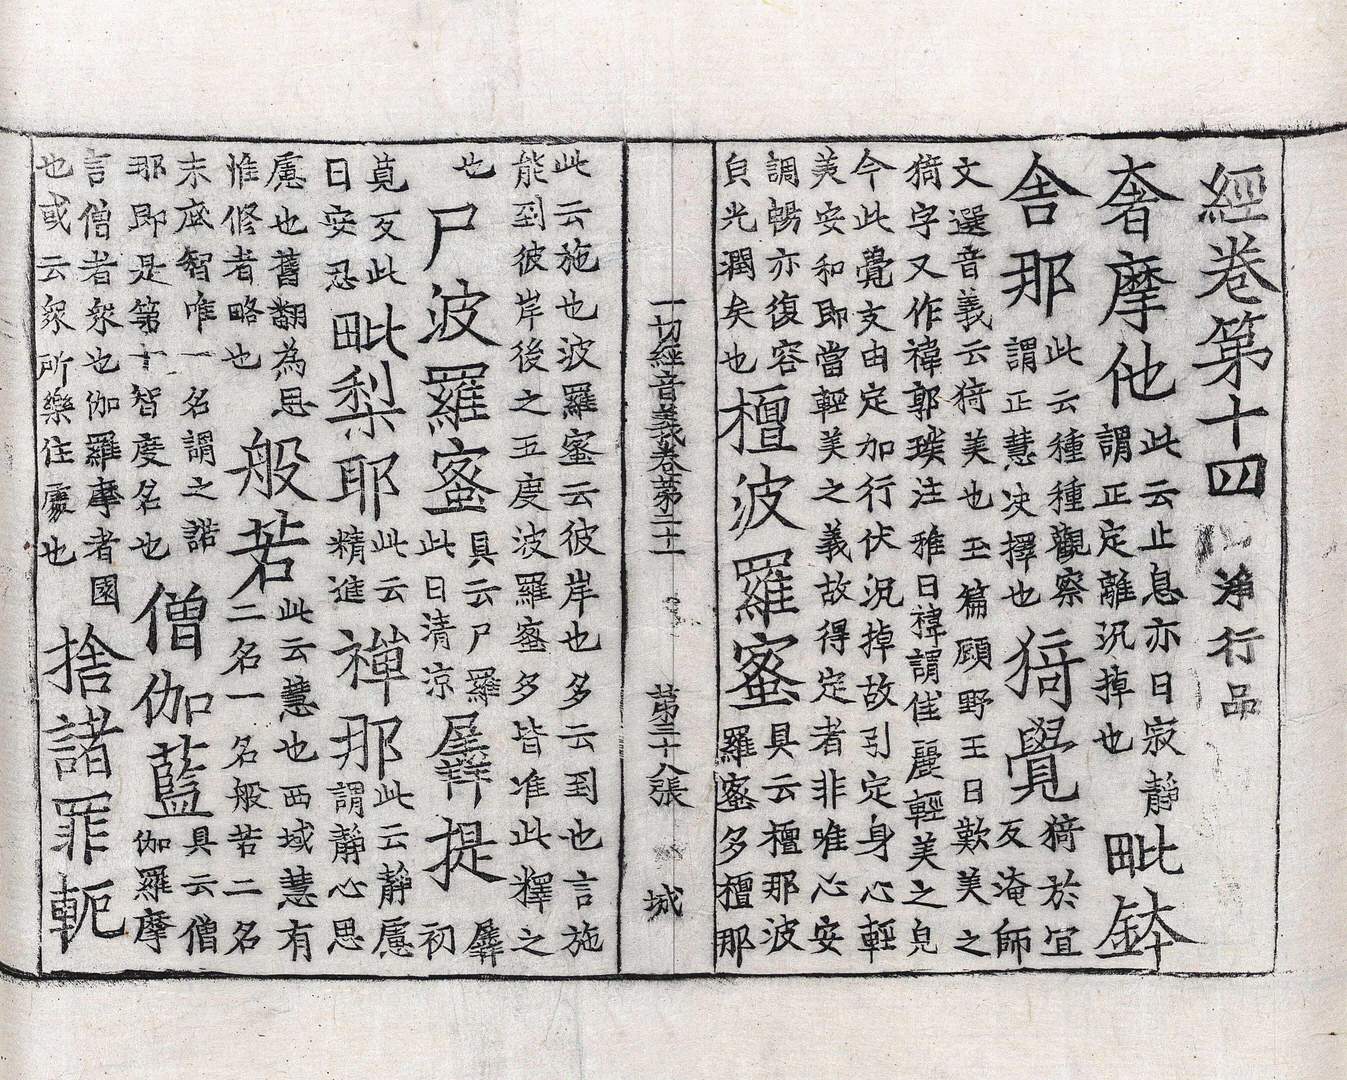 經卷第十四 淨行品
奢摩他 此云止息亦曰寂靜 謂正定離沉掉也 毗鉢
舍那 此云種種觀察 謂正慧决擇也 猗覺 猗於宜 反淹師
文選音義云猗美也玉篇顧野王曰歎美之
猗字又作禕郭璞注雅曰禕謂佳麗輕美之皃
今此覺支由定加行伏況掉故引定身心輕
美安和即當輕美之義故得定者非唯心安
調暢亦復容 皃光潤矣也 檀波羅蜜 具云檀那波 羅蜜多檀那
一切經音義卷第二十一 第三十八張 城
此云施也波羅蜜云彼岸也多云到也言施
能到彼岸後之五度波羅蜜多皆准此釋之
也 尸波羅蜜 具云尸羅 此曰清涼 羼提 羼 初
莧反此 曰安忍 毗梨耶 此云 精進 禪那 此云靜慮 謂靜心思
慮也舊翻為思 惟修者略也 般若 此云慧也西域慧有 二名一名般若二名
末底智唯一名謂之諾 耶即是第十智度名也 僧伽藍 具云僧 伽羅摩
言僧者衆也伽羅摩者園 也或云衆所樂住處也 捨諸罪軛